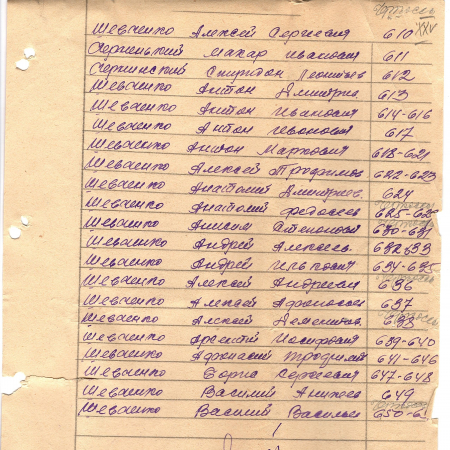 XXV
Шевченко Алексей Сергеевич 610
Чернецкий Макар Иванович 611
Чернинский Спиридон Леонтьев 612
Шевченко Антон Дмитриев 613
Шевченко Антон Иванович 614-616
Шевченко Антон Иванович 617
Шевченко Антон Маркович 618-621
Шевченко Алексей Трофимов 622-623
Шевченко Анатолий Дмитриев 624
Шевченко Анатолий Федосеев 625-
Шевченко Анисим Степанович 630-631
Шевченко Андрей Алексеев 632-633
Шевченко Андрей 634-635
Шевченко Алексей Андреевич 636
Шевченко Алексей Афанасьев 637
Шевченко Алексей 638
Шевченко Арсентий Иосифович 639-640
Шевченко Афанасий Трофимов 641-646
Шевченко Борис Сергеевич 647-648
Шевченко Василий 649
Шевченко Василий Васильев 650-